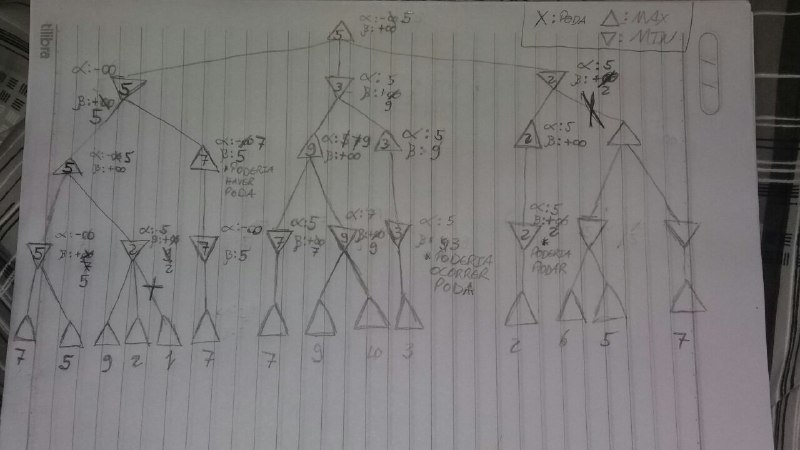 tilibra
X: PODA △: MAX
▽: MIN
α: -∞ 5
β: +∞
5
α: -∞
β: +∞
5
5
α: 5
β: +∞
9
3
α: 5
β: +∞
2
2
X
α: -∞ 5
β: +∞
5
α: -∞ 7
β: 5
* PODERIA
HAVER
PODA
7
9
β: +∞
α: 5
β: 9
3
α: 5
β: +∞
2
α: -∞
β: +∞
7
5
5
α: 5
β: +∞
9
2
2
X
α: -∞
β: 5
7
α: 5
β: +∞
7
7
α: 7
β: +∞
9
9
α: 5
β: 9 3
* PODERIA
OCORRER
PODA
3
α: 5
β: +∞
2
* PODERIA
PODAR
2
7 5 9 2 1 7 7 9 10 3 2 6 5 7